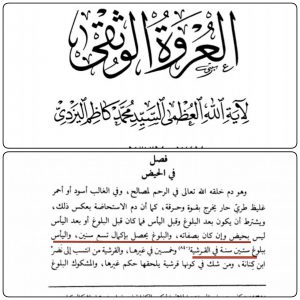 العروة الوثقى
لآية الله العظمى السيد محمد كاظم اليزدي
فصل
في الحيض
وهو دم خلقه الله تعالى في الرحم لمصالح، وفي الغالب أسود أو أحمر
غليظ طري حار يخرج بقوة وحرقة، كما أن دم الاستحاضة بعكس ذلك،
ويشترط أن يكون بعد البلوغ وقبل اليأس فما كان قبل البلوغ أو بعد اليأس
ليس بحيض وإن كان بصفاته، والبلوغ يحصل بإكمال تسع سنين، واليأس
ببلوغ ستين سنة في القرشية وخمسين في غيرها، والقرشية من انتسب إلى نضر
ابن كنانة، ومن شك في كونها قرشية يلحقها حكم غيرها، والمشكوك البلوغ